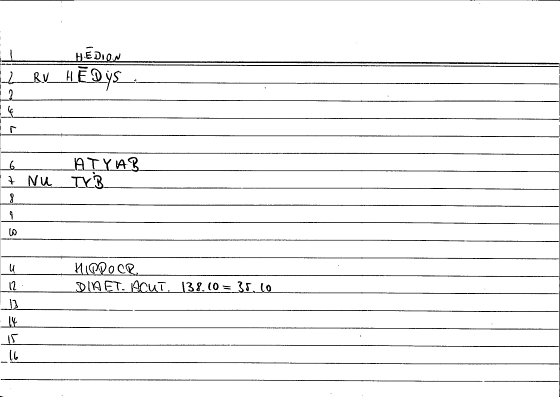 1 HĒDION
2 RV HĒDYS.
3
4
5
6 ATYAB
7 NU TYB
8
9
10
11 HIPPOCR.
12 DIAET. ACUT. 138.10 = 35.10
13
14
15
16